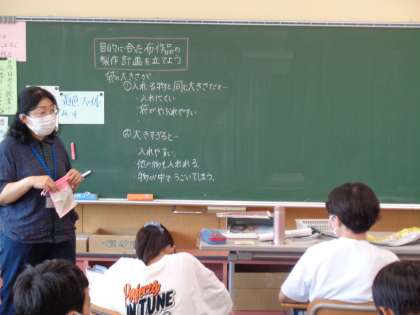 目的に合った布作品の
製作計画を立てよう
袋の大きさが
①入れる物と同じ大きさだと…
・入れにくい
・袋がやぶれやすい
②大きすぎると…
・入れやすい。
・他の物も入れれる。
・物が中でうごいてしまう。
Perfectly
IN TUNE